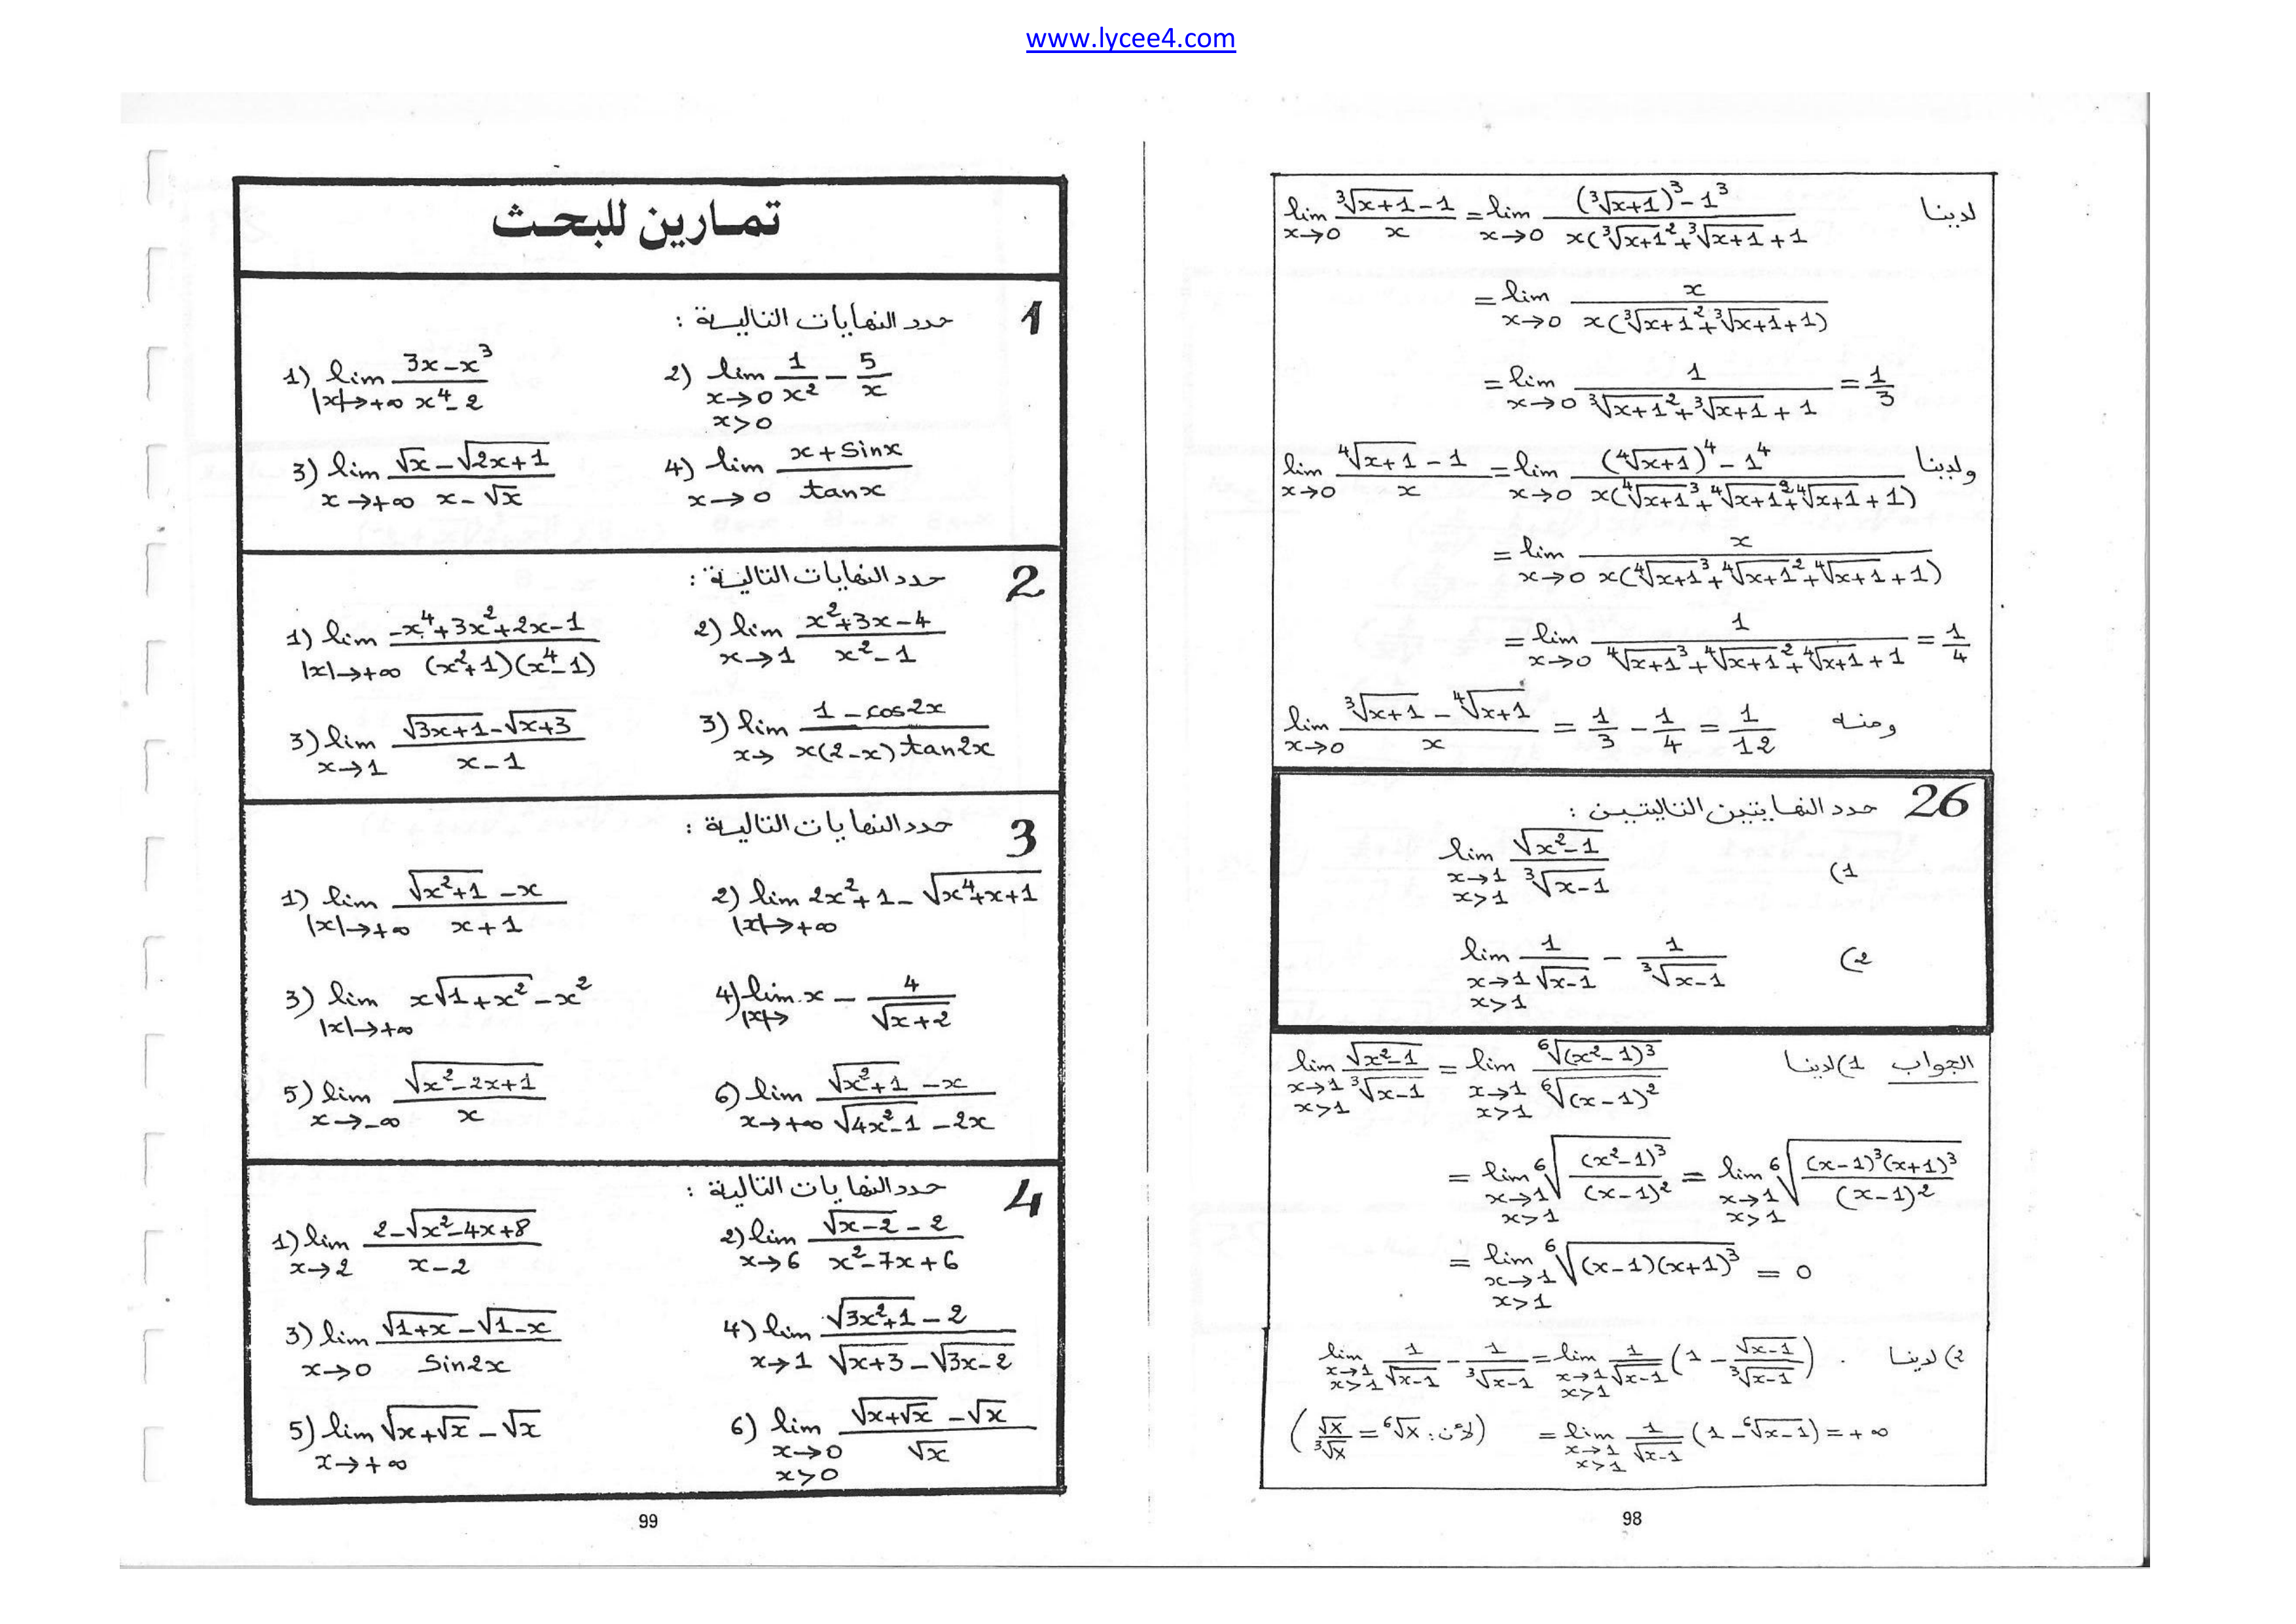 www.lycee4.com
لدينا lim x→0 (∛(x+1) - 1)/x = lim x→0 ((∛(x+1))³ - 1³)/(x(∛(x+1)² + ∛(x+1) + 1
= lim x→0 x/(x(∛(x+1)² + ∛(x+1) + 1))
= lim x→0 1/(∛(x+1)² + ∛(x+1) + 1) = 1/3
ولدينا lim x→0 (∜(x+1) - 1)/x = lim x→0 ((∜(x+1))⁴ - 1⁴)/(x(∜(x+1)³ + ∜(x+1)² + ∜(x+1) + 1))
= lim x→0 x/(x(∜(x+1)³ + ∜(x+1)² + ∜(x+1) + 1))
= lim x→0 1/(∜(x+1)³ + ∜(x+1)² + ∜(x+1) + 1) = 1/4
ومنه lim x→0 (∛(x+1) - ∜(x+1))/x = 1/3 - 1/4 = 1/12
26 حدد النهايتين التاليتين :
(1 lim x→1 x>1 √(x²-1)/∛(x-1)
(2 lim x→1 x>1 1/√(x-1) - 1/∛(x-1)
الجواب 1) لدينا lim x→1 x>1 √(x²-1)/∛(x-1) = lim x→1 x>1 ⁶√((x²-1)³)/⁶√((x-1)²)
= lim x→1 x>1 ⁶√((x²-1)³/(x-1)²) = lim x→1 x>1 ⁶√((x-1)³(x+1)³/(x-1)²)
= lim x→1 x>1 ⁶√((x-1)(x+1)³) = 0
2) لدينا lim x→1 x>1 1/√(x-1) - 1/∛(x-1) = lim x→1 x>1 1/√(x-1) (1 - √(x-1)/∛(x-1)) .
= lim x→1 x>1 1/√(x-1) (1 - ⁶√(x-1)) = +∞ (لأن : √x/∛x = ⁶√x)
98
تمارين للبحث
1 حدد النهايات التالية :
1) lim |x|→+∞ (3x-x³)/(x⁴-2) 2) lim x→0 x>0 1/x² - 5/x
3) lim x→+∞ (√x - √(2x+1))/(x-√x) 4) lim x→0 (x+sinx)/tanx
2 حدد النهايات التالية :
1) lim |x|→+∞ (-x⁴+3x²+2x-1)/((x²+1)(x⁴-1)) 2) lim x→1 (x²+3x-4)/(x²-1)
3) lim x→1 (√(3x+1) - √(x+3))/(x-1) 3) lim x→ (1-cos2x)/(x(2-x)tan2x)
3 حدد النهايات التالية :
1) lim |x|→+∞ (√(x²+1) - x)/(x+1) 2) lim |x|→+∞ 2x²+1 - √(x⁴+x+1)
3) lim |x|→+∞ x√(1+x²) - x² 4) lim |x|→ x - 4/√(x+2)
5) lim x→-∞ √(x²-2x+1)/x 6) lim x→+∞ (√(x²+1) - x)/(√(4x²-1) - 2x)
4 حدد النهايات التالية :
1) lim x→2 (2-√(x²-4x+8))/(x-2) 2) lim x→6 (√(x-2) - 2)/(x²-7x+6)
3) lim x→0 (√(1+x) - √(1-x))/sin2x 4) lim x→1 (√(3x²+1) - 2)/(√(x+3) - √(3x-2))
5) lim x→+∞ √(x+√x) - √x 6) lim x→0 x>0 (√(x+√x) - √x)/√x
99